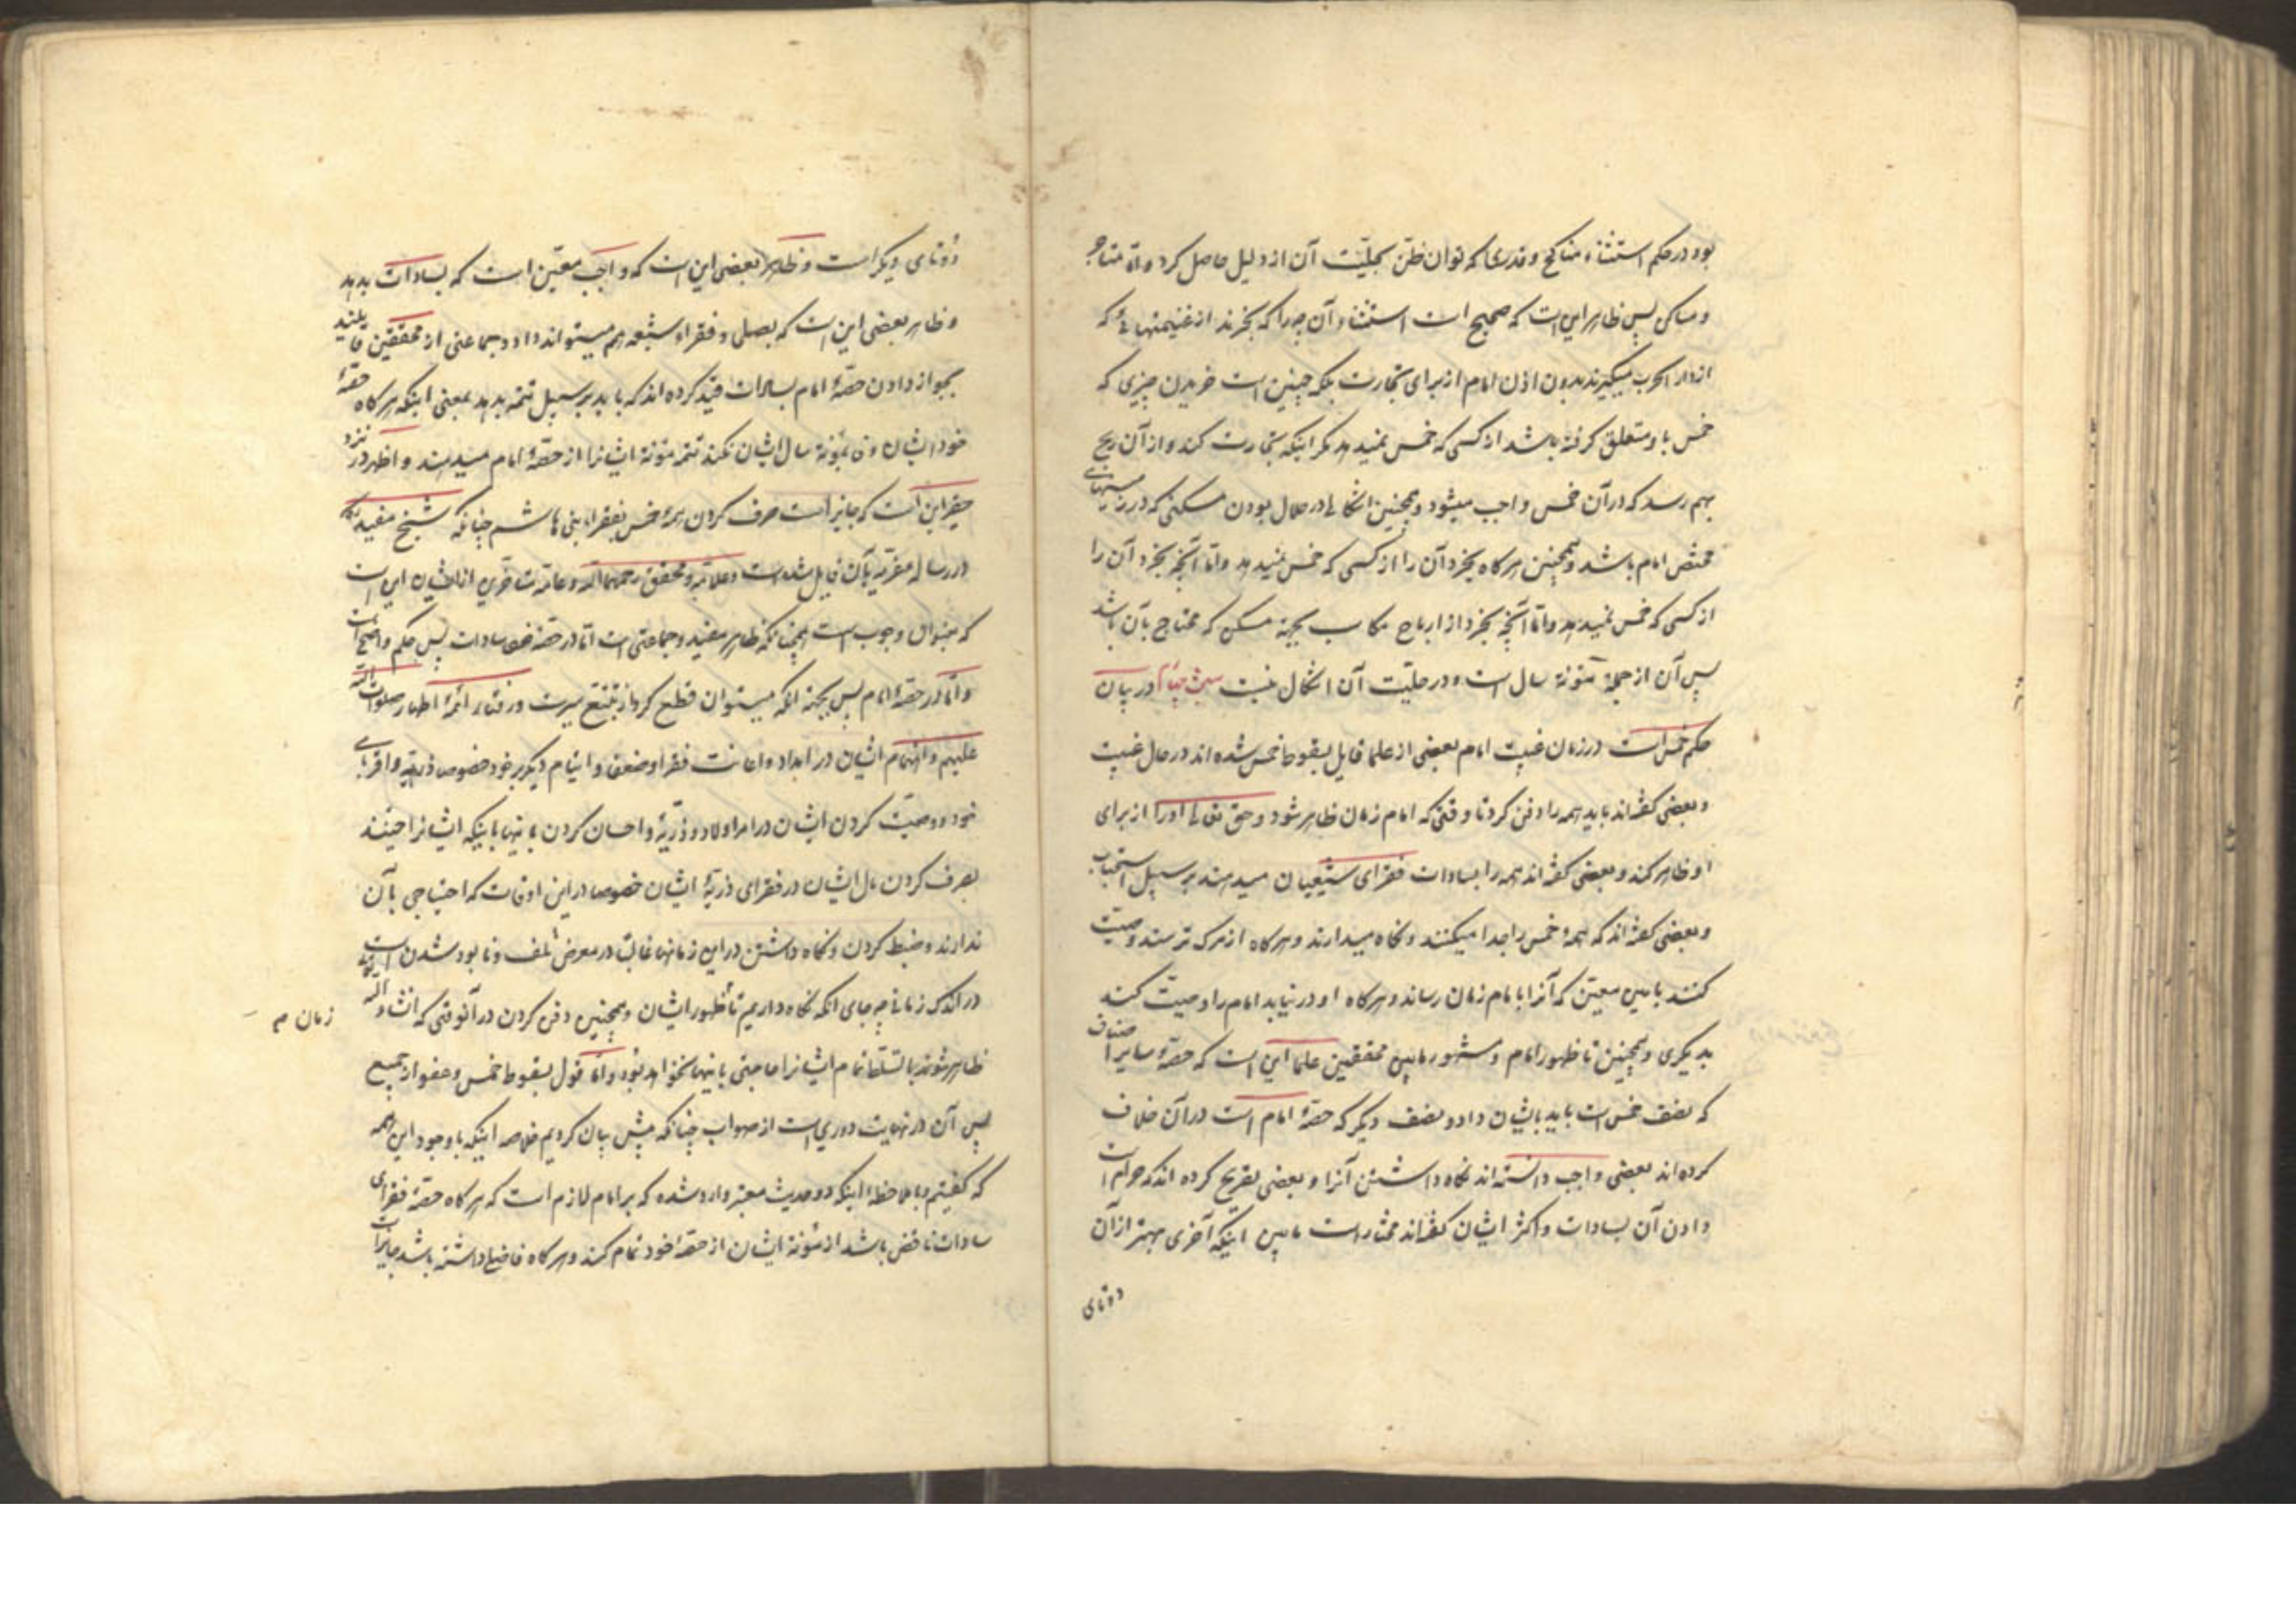 بود در حکم استثناء مناکح و قدری که توان ظن بحلیّت آن از دلیل حاصل کرد و امّا متاجر
و مساکن پس ظاهر این است که صحیح است استثناء آن چه را که بخرند از غنیمتهائی که
از دار الحرب میگیرند بدون اذن امام از برای تجارت بلکه چنین است خریدن چیزی که
خمس باو متعلق گرفته باشد از کسی که خمس نمیدهد مگر اینکه تجارت کند و از آن ربح
بهم رسد که در آن خمس واجب میشود و همچنین اشکالی در حلال بودن مسکنی که در زمینهای
مختص امام باشد و همچنین هرگاه بخرد آن را از کسی که خمس نمیدهد و امّا آنچه بخرد آن را
از کسی که خمس نمیدهد و امّا آنچه بخرد از ارباح مکاسب بجهة مسکن که محتاج بآن باشد
پس آن از جملهٔ مئونهٔ سال است و در حلیّت آن اشکال نیست مبحث چهارم در بیان
حکم خمس است در زمان غیبت امام بعضی از علما قایل بسقوط خمس شده اند در حال غیبت
و بعضی گفته‌اند باید همه را دفن کرد تا وقتی که امام زمان ظاهر شود و حق تعالی او را از برای
او ظاهر کند و بعضی گفته اند همه را بسادات فقرای شیعیان میدهند بر سبیل استحباب
و بعضی گفته اند که همهٔ خمس را جدا میکنند و نگاه میدارند و هرگاه از مرگ ترسند وصیّت
کنند بامین معیّن که آنرا بامام زمان رساند و هرگاه او در نیابد امام را وصیت کند
بدیگری و همچنین تا ظهور امام و مشهور مابین محققین علما این است که حصّهٔ سایر اصناف
که نصف خمس است باید بایشان داد و نصف دیگر که حصّهٔ امام است در آن خلاف
کرده اند بعضی واجب دانسته اند نگاه داشتن آنرا و بعضی تصریح کرده اند که حرام است
دادن آن بسادات و اکثر ایشان گفته‌اند مختار است مابین اینکه آخری بهتر از آن
دوتای
دوتای دیگر است و ظاهر بعضی این است که واجب معیّن است که بسادات بدهد
و ظاهر بعضی این است که بصلی و فقراء شیعه هم میتواند داد و جماعتی از محققین قایلند
بجواز دادن حصّهٔ امام بسادات قید کرده اند که باید بر سبیل تتمّه بدهد بمعنی اینکه هرگاه حصّهٔ
خود ایشان وفا بمئونهٔ سال ایشان نکند تتمهٔ مئونهٔ ایشانرا از حصّهٔ امام میدهند و اظهر در نزد
حقیر این است که جایز است صرف کردن همهٔ خمس بفقراء بنی هاشم چنانکه شیخ مفید
در رساله بآن قایل شده است و علامه و محقق رحمهما الله و عامّهٔ متاخرین از ایشان این است
که بعنوان وجوب است همچنانکه ظاهر مفید و جماعتی است امّا در حصّهٔ سادات پس حکم واضح است
و امّا در حصّهٔ امام پس بجهة انکه میتوان قطع کرد از تتبّع سیرت و رفتار ائمّهٔ اطهار صلوات الله
علیهم و اهتمام ایشان در امداد و اعانت فقرا و ضعفا و ایتام دیگر بر خود خصوصا ذریّه و اقربای
خود و وصیّت کردن ایشان در امر اولاد و ذریّه و احسان کردن بانها باینکه ایشان راضیند
بصرف کردن مال ایشان در فقرای ذریّهٔ ایشان خصوصا در این اوقات که احتیاجی بآن
ندارند و ضبط کردن و نگاه داشتن در این زمانها غالبا در معرض تلف و نابود شدن است
در اندک زمانی چه جای انکه نگاه داریم تا ظهور ایشان و همچنین دفن کردن در آنوقتی که انشاء الله
زمان م
ظاهر شوند با تسلّط تمام ایشانرا حاجتی بانها نخواهد بود و امّا قول بسقوط خمس و عفو از جمیع
پس آن در نهایت دوری است از صواب چنانکه پیش بیان کردیم خلاصه اینکه با وجود این همه
که گفتیم و با ملاحظهٔ اینکه دو حدیث معتبر وارد شده که بر امام لازم است که هرگاه حصّهٔ فقرای
سادات ناقص باشد از مئونهٔ ایشان از حصّهٔ خود تمام کند و هرگاه فاضلی داشته باشد جایز است